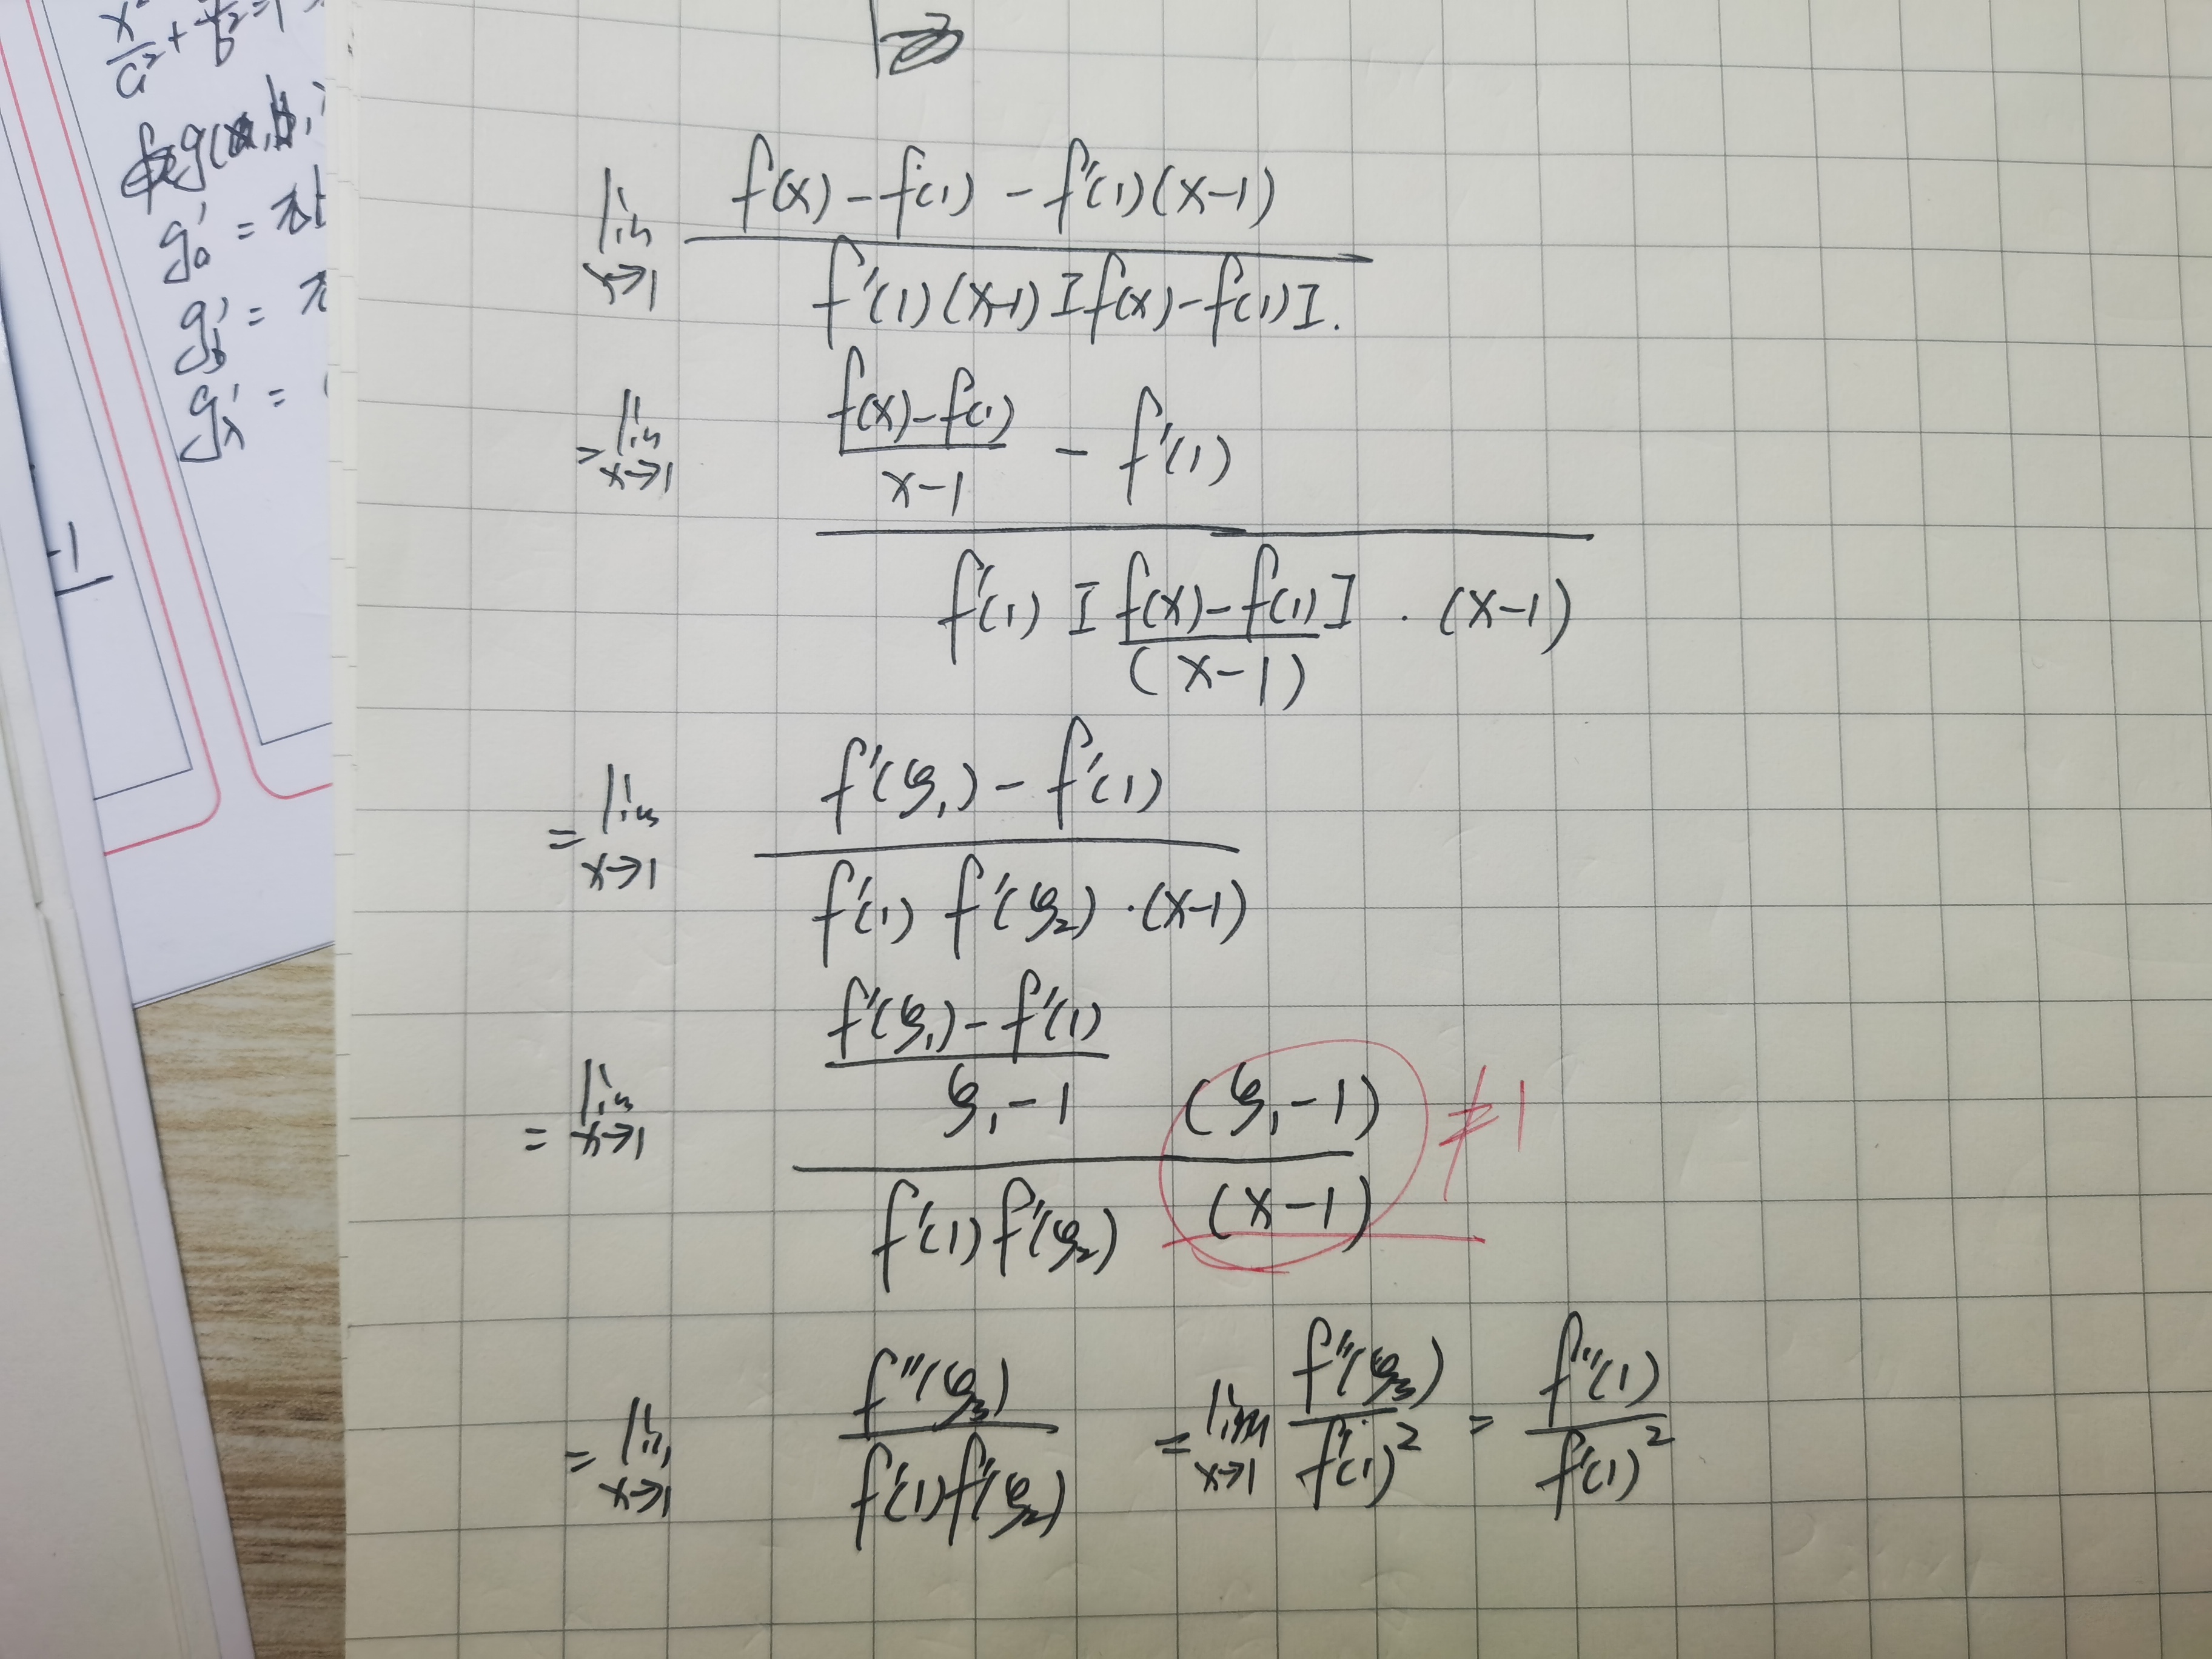 x²/a² + y²/b² = 1
g(
g'ₐ = π
g'_b = π
g'_λ =
-1
lim x→1 (f(x)-f(1) - f'(1)(x-1)) / (f'(1)(x-1)[f(x)-f(1)].)
= lim x→1 ((f(x)-f(1))/(x-1) - f'(1)) / (f'(1)[(f(x)-f(1))/(x-1)]·(x-1))
= lim x→1 (f'(ξ₁) - f'(1)) / (f'(1) f'(ξ₂)·(x-1))
= lim x→1 ((f'(ξ₁) - f'(1))/(ξ₁-1) (ξ₁-1)) / (f'(1)f'(ξ₂) (x-1)) ≠1
= lim x→1 f''(ξ₃) / (f'(1)f'(ξ₂)) = lim x→1 f''(ξ₃) / f'(1)² = f''(1) / f'(1)²